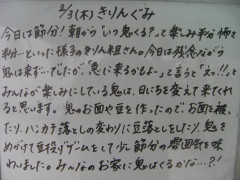 2/3(木) きりんぐみ
今日は節分!朝から"いつ鬼くる?"って楽しみ半分怖さ
半分…といった様子のきりん組さん。今日は残念ながら
鬼は来ず…でしたが、"急に来るかもよ…"と言うと"えっ!!"と
みんなが楽しみにしている鬼は、日にちを変えて来てくれる
と思います。鬼のお面や豆を作ったので、お面を被っ
たり、ハンカチ落としの変わりに豆落としをしたり、鬼を
めがけて豆投げゲームをして少し節分の雰囲気を味
わいました。みんなのお家に鬼はくるかな…?!